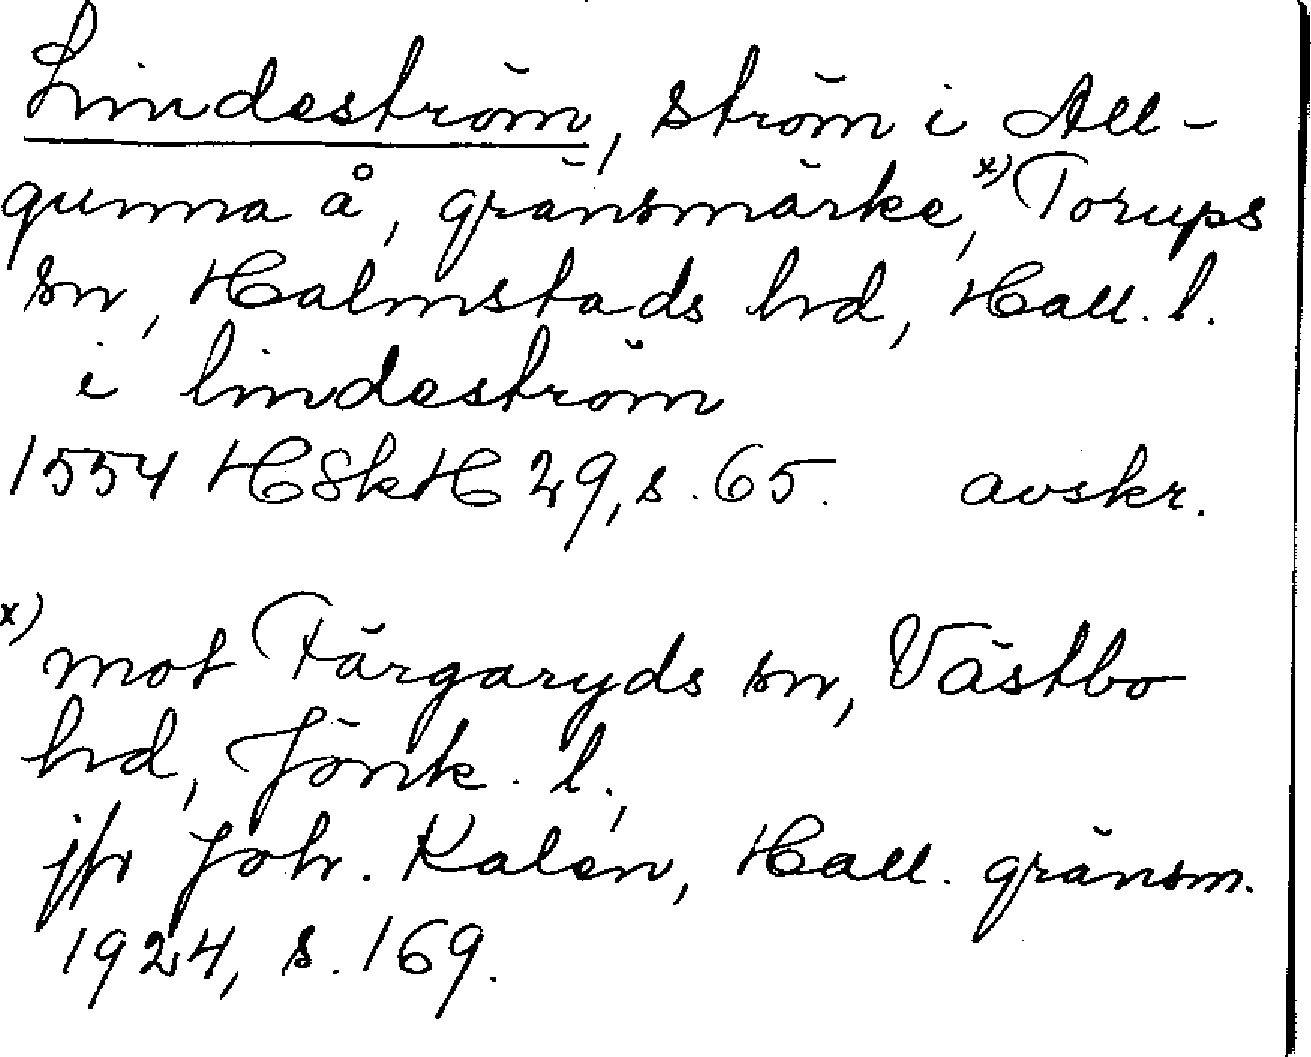 Lindeström, ström i All-
gunna å, gränsmärke,x) Torups
sn, Halmstads hd, Hall. l.
i lindeström
1554 HSkH 29, s. 65. avskr.
x) mot Färgaryds sn, Västbo
hd, Jönk. l.,
jfr Joh. Kalén, Hall. gränsm.
1924, s. 169.